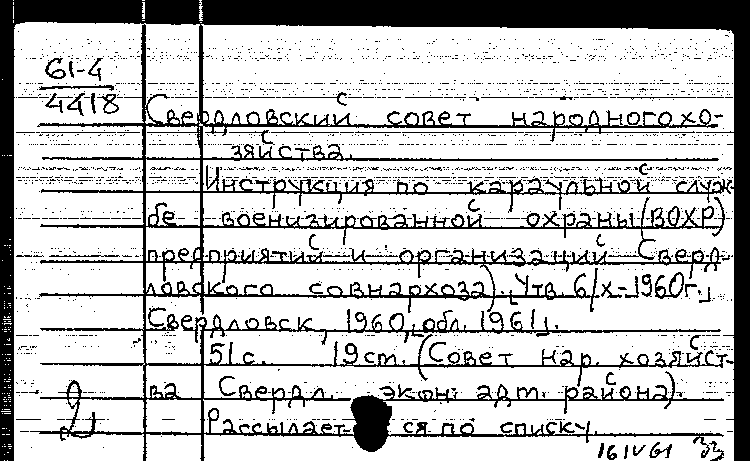 61-4
4418
Свердловский совет народного хо-
зяйства.
Инструкция по караульной служ-
бе военизированной охраны (ВОХР)
предприятий и организаций Сверд-
ловского совнархоза). [Утв. 6/X-1960г.]
Свердловск, 1960, [обл. 1961].
51с. 19см. (Совет нар. хозяйст-
ва Свердл. экон. адм. района).
Рассылает ся по списку.
16 IV 61 33